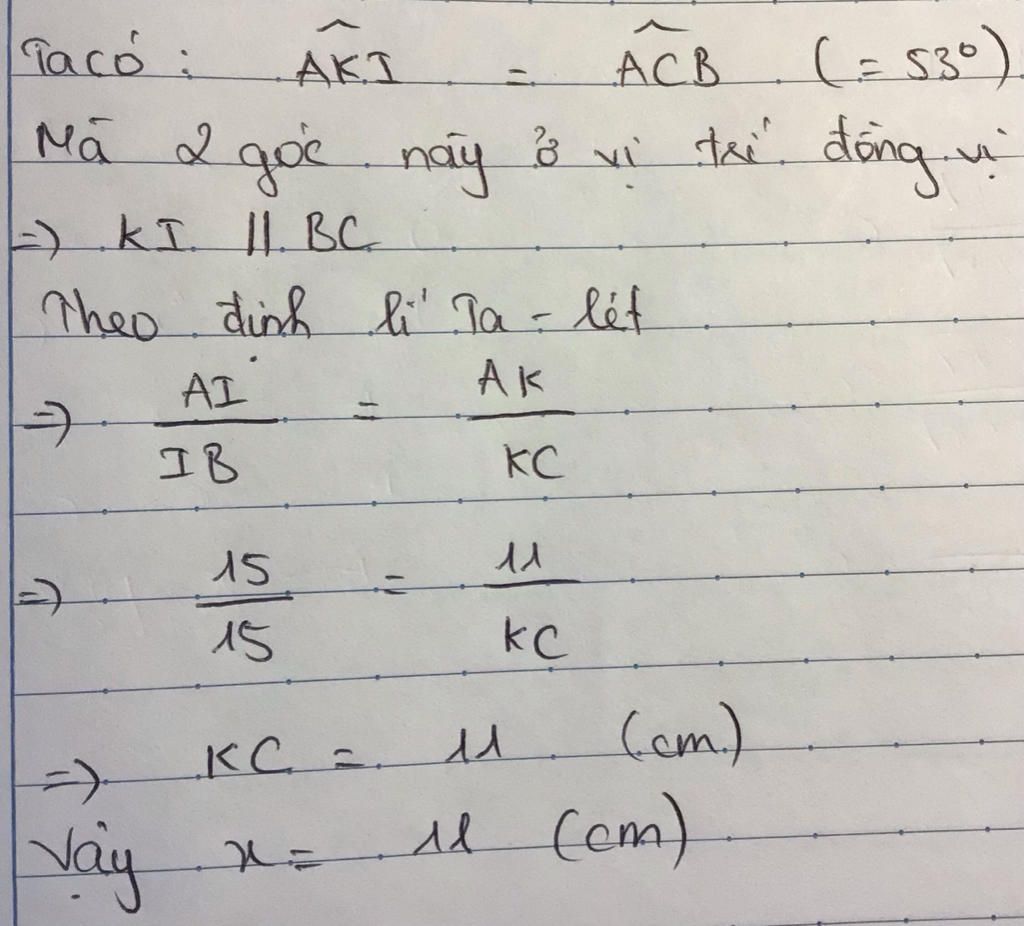 Ta có : \widehat{AKI} = \widehat{ACB} (= 53°)
Mà 2 góc này ở vị trí đồng vị
=> KI // BC
Theo định lí Ta - lét
=> AI/IB = AK/KC
=> 15/15 = 11/KC
=> KC = 11 (cm)
Vậy x = 11 (cm)